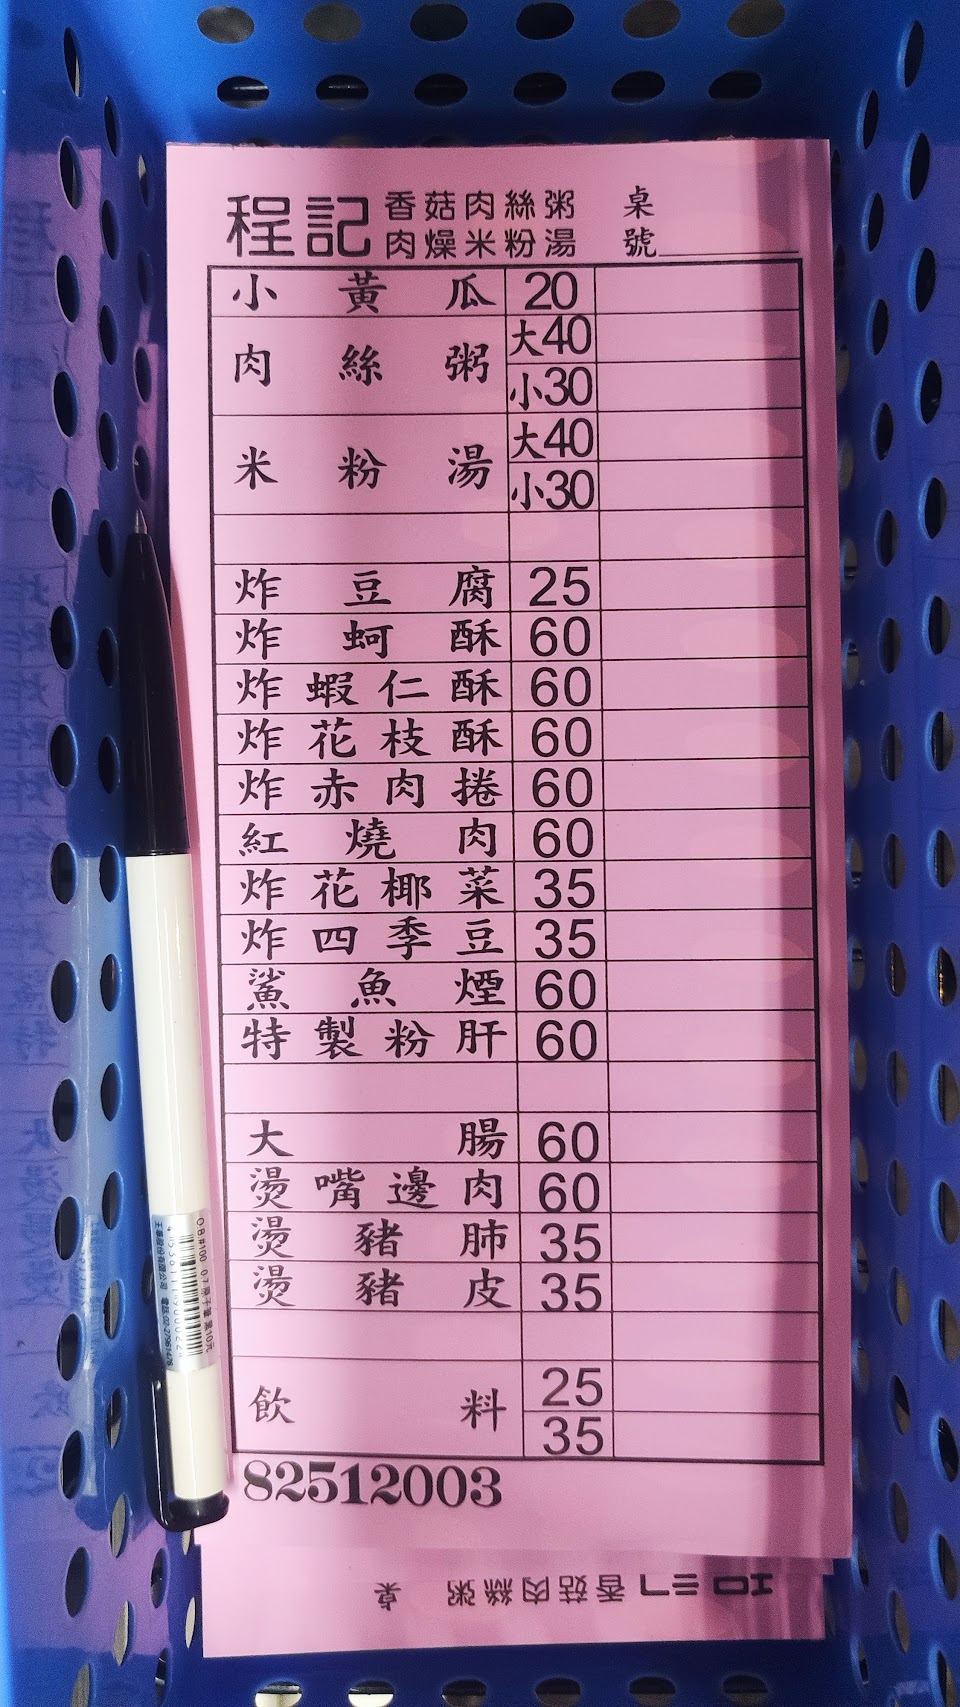 程記 香菇肉絲粥 肉燥米粉湯 桌號
小黃瓜 20
肉絲粥 大40
小30
米粉湯 大40
小30
炸豆腐 25
炸蚵酥 60
炸蝦仁酥 60
炸花枝酥 60
炸赤肉捲 60
紅燒肉 60
炸花椰菜 35
炸四季豆 35
鯊魚煙 60
特製粉肝 60
大腸 60
燙嘴邊肉 60
燙豬肺 35
燙豬皮 35
飲料 25
35
82512003
香菇肉絲粥 桌
OB#100 0.7原子筆 黑10元
王華股份有限公司